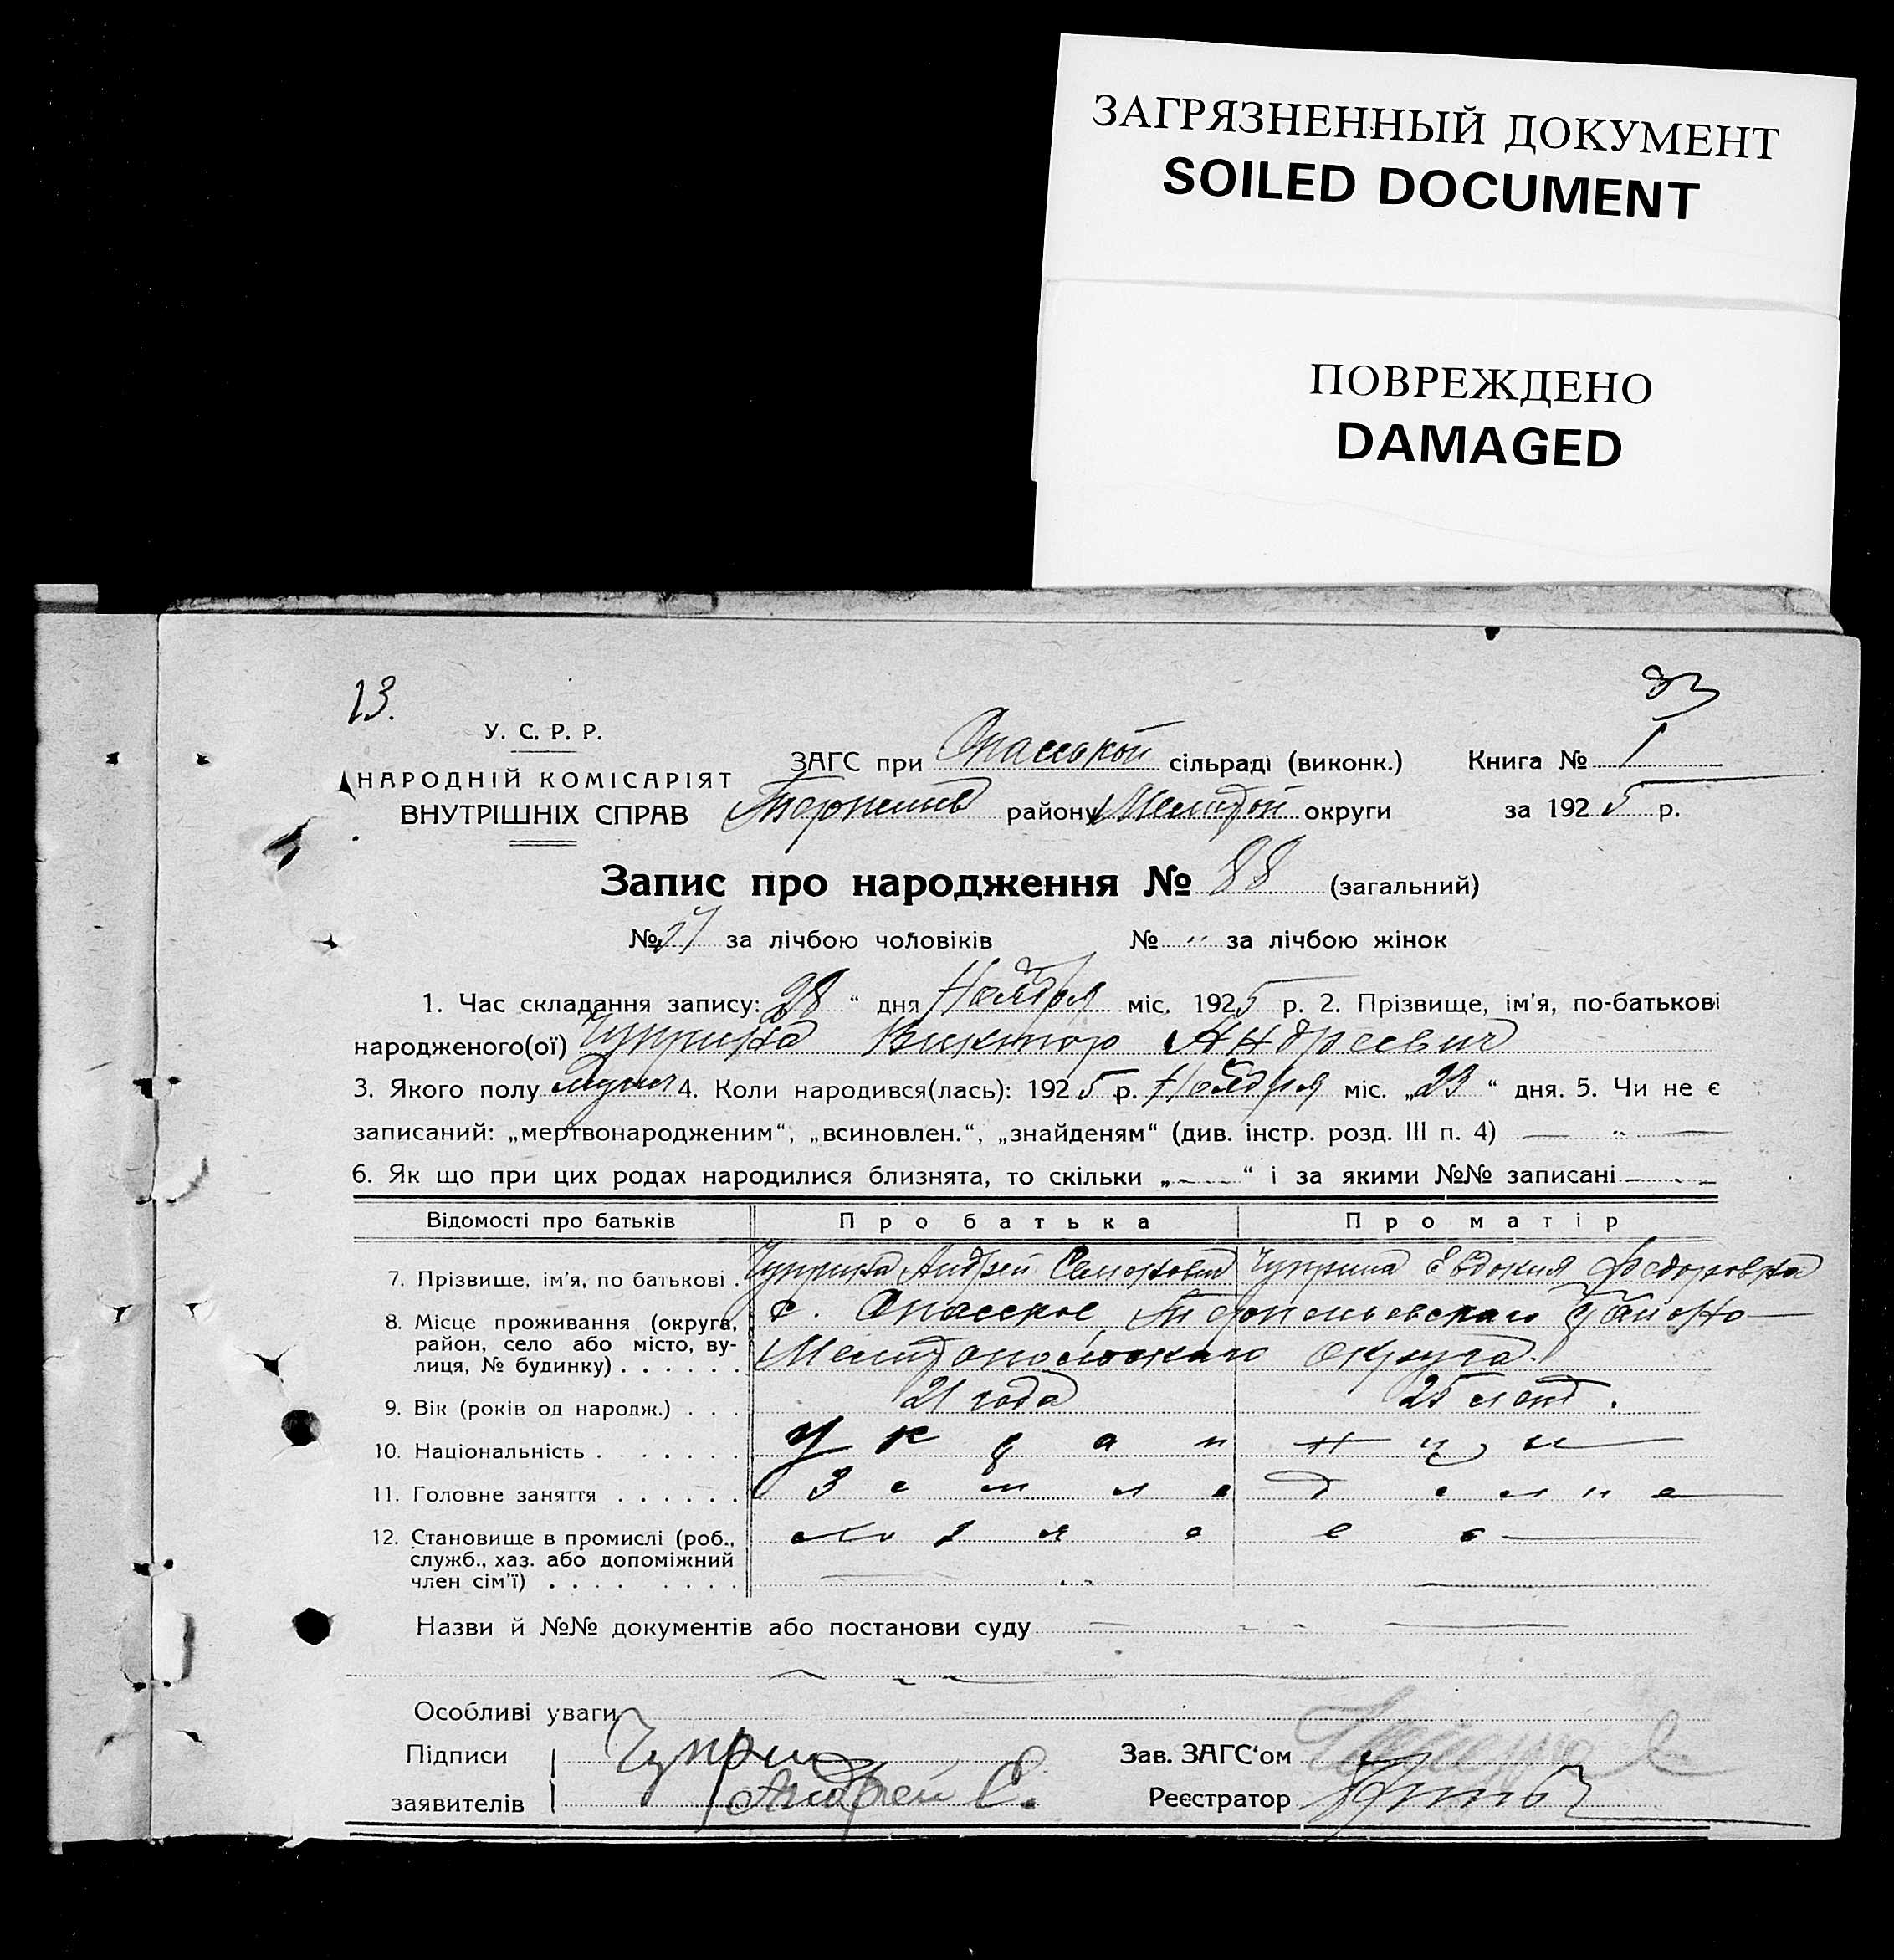 ЗАГРЯЗНЕННЫЙ ДОКУМЕНТ
SOILED DOCUMENT
ПОВРЕЖДЕНО
DAMAGED
13.
У. С. Р. Р.
НАРОДНІЙ КОМІСАРІЯТ
ВНУТРІШНІХ СПРАВ
ЗАГС при Спасской сільраді (виконк.) Книга № 1
району округи за 1925 р.
Запис про народження № 88 (загальний)
№ за лічбою чоловіків № " за лічбою жінок
1. Час складання запису: 28 “ дня Ноября міс. 1925 р. 2. Прізвище, ім’я, по-батькові
народженого(ої) Чуприна Виктор Андреевич
3. Якого полу 4. Коли народився(лась): 1925 р. Ноября міс. „23“ дня. 5. Чи не є
записаний: „мертвонародженим“, „всиновлен.“, „знайденям“ (див. інстр. розд. III п. 4) — " —
6. Як що при цих родах народилися близнята, то скільки „ — “ і за якими №№ записані
Відомості про батьків Про батька Про матір
7. Прізвище, ім’я, по батькові . Чуприна Андрей Семенович Чуприна Евдокия Федоровна
8. Місце проживання (округа, район, село або місто, ву-лиця, № будинку) . . . . . . с. Спасское, Терпеньевского Района
Мелитопольского Округа.
9. Вік (років од народж.) . . . 21 года 25 лет.
10. Національність . . . . . . . Украинцы
11. Головне заняття . . . . . . Земледелие
12. Становище в промислі (роб., служб., хаз. або допоміжний член сім’ї) . . . . . . . . Хозяева
Назви й №№ документів або постанови суду
Особливі уваги
Підписи Чуприна Зав. ЗАГС‘ом
заявителів Андрей С. Реєстратор